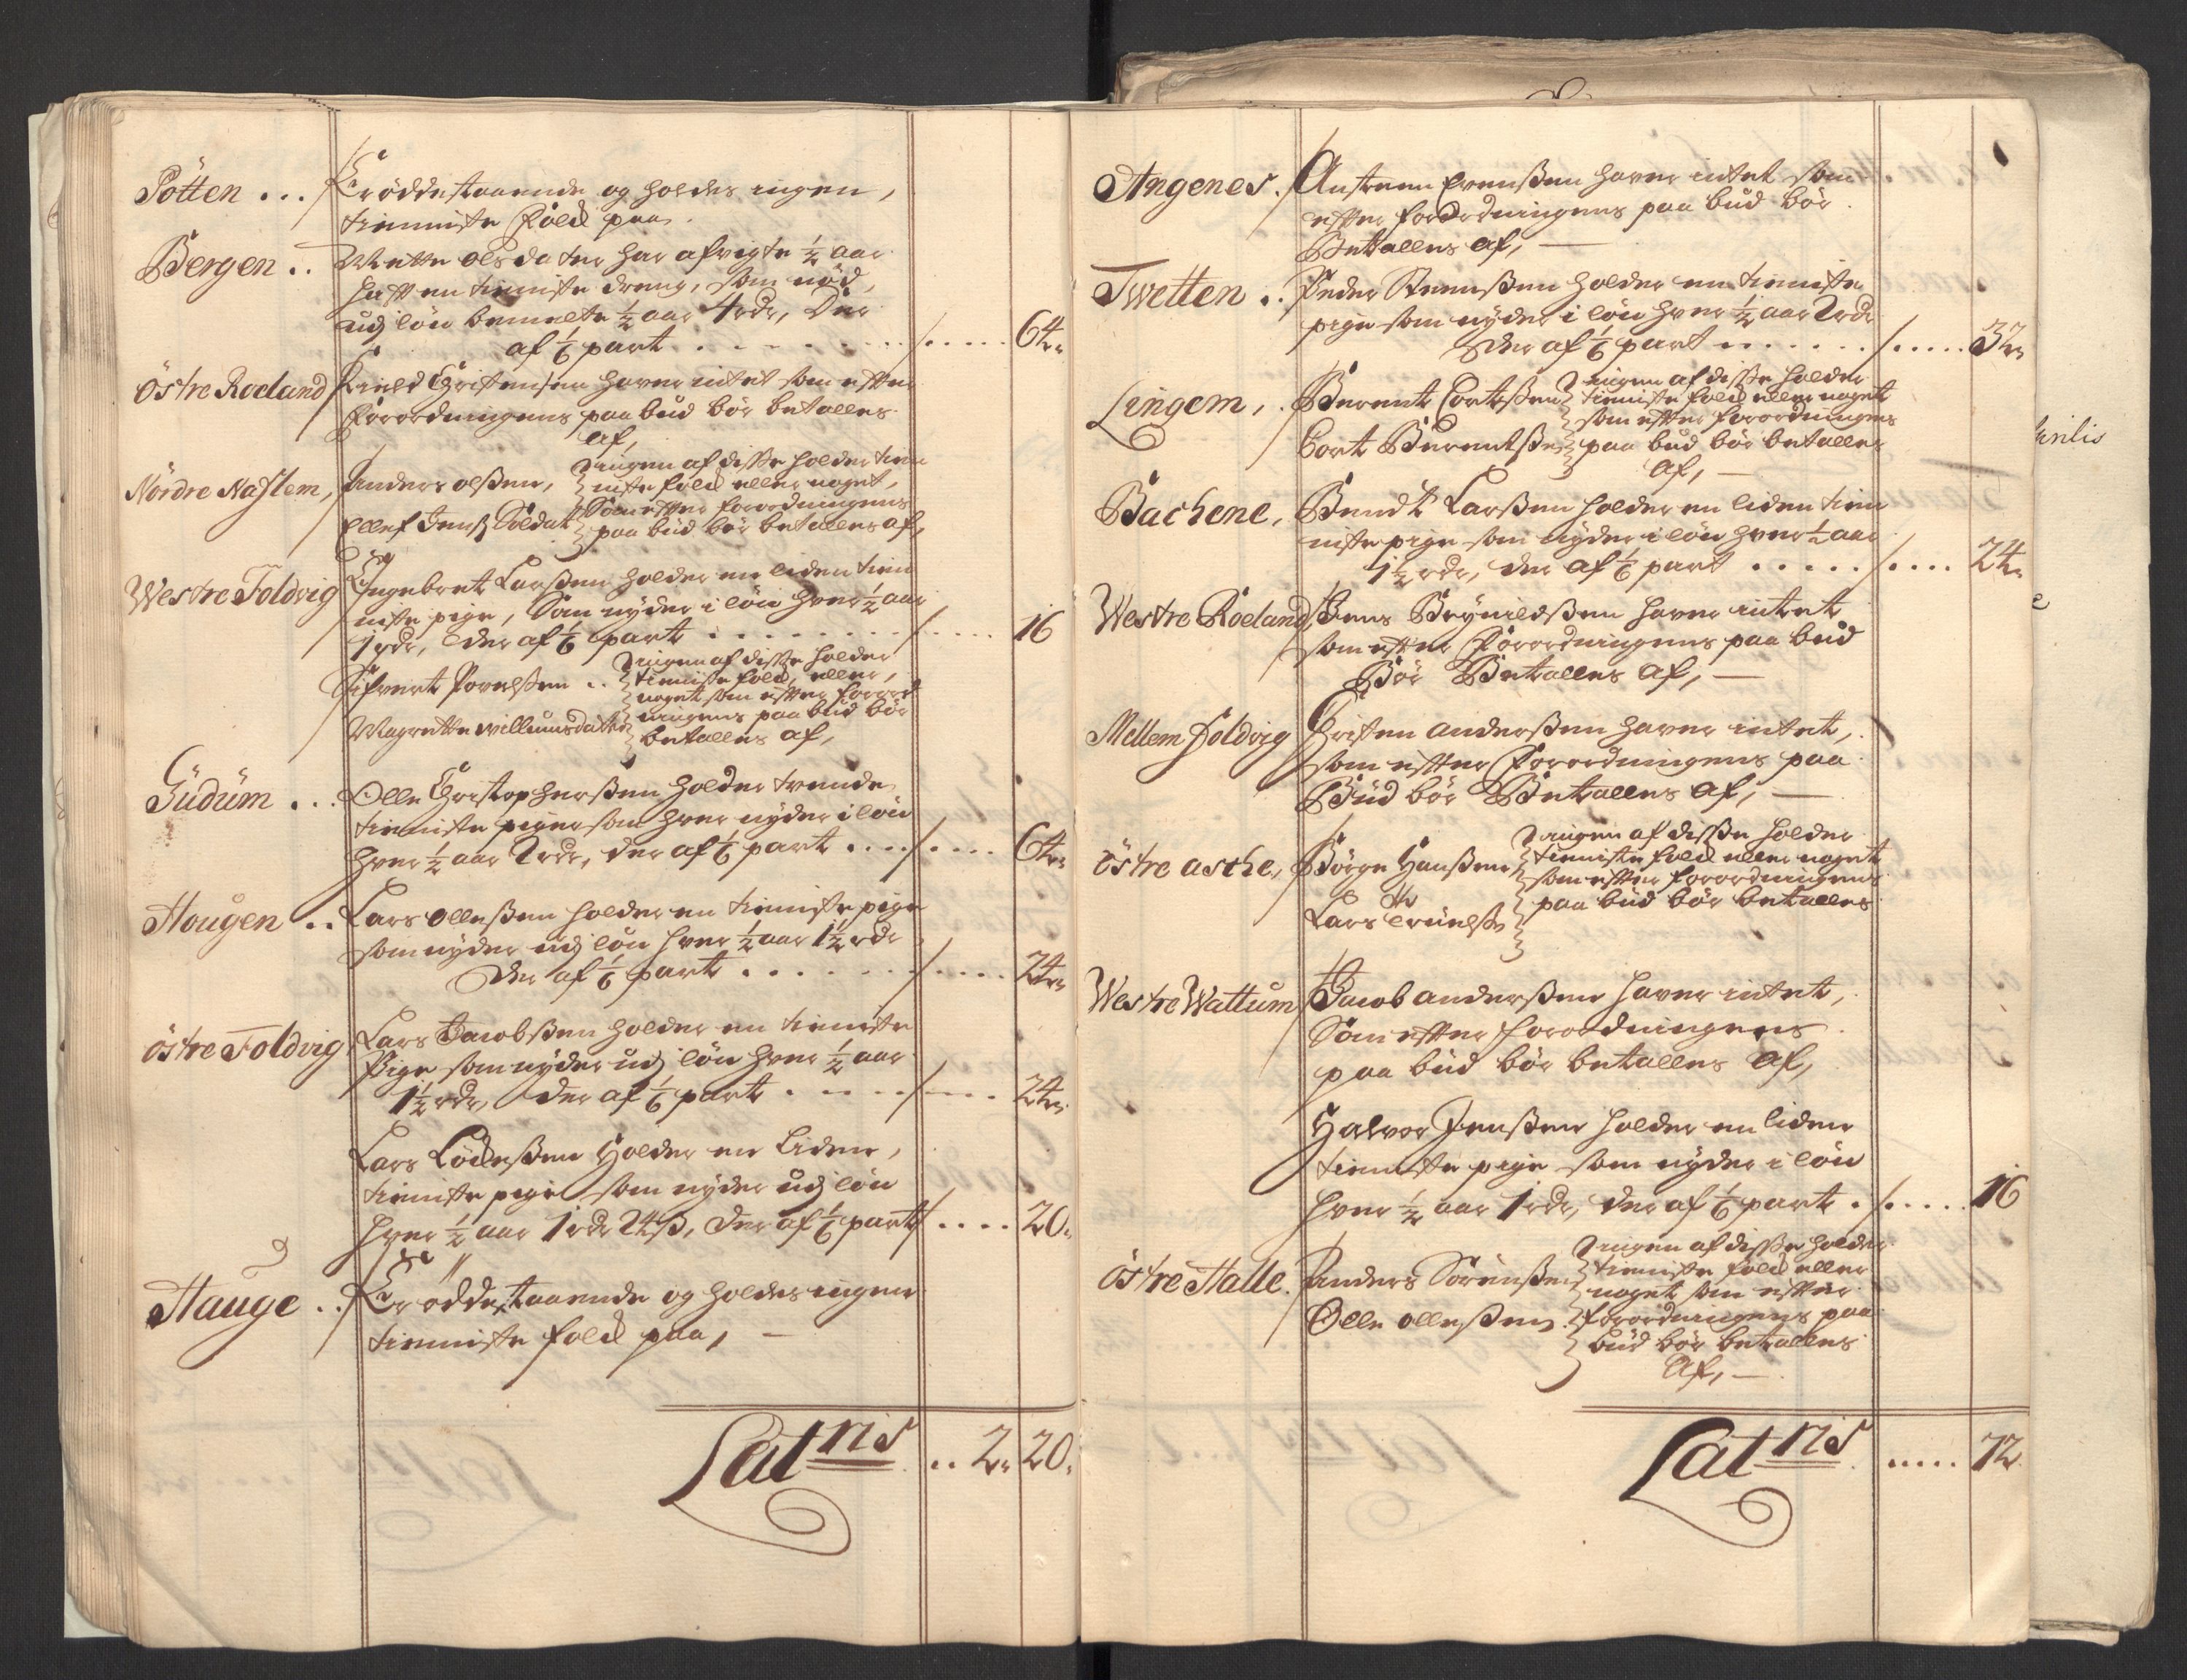 Pötten ... Er öddestaaende og holdes ingen,
tienniste Folck paa.
Bergen .. Mette olsdatter har afvigte ½ aar
hafft en tienniste dreng, som nöd,
udj lön bemelte ½ aar 4 rdr, Der
af 1/6 part . . . . . . . 64
östre Roeland Kield Christensen haver intet som effter
Forordningens paabud bör betalles
af,
Nördre Nastem, Anders olßen,
Ellef Jenß Soldat
Ingen af disse holder tien
niste folck eller noget,
Som effter forordningens
paa bud bör betalles af,
Westre Foldvig Engebret Larßen holder en liden tien
niste pige, Som nyder i lön hver ½ aar
1 rdr, der af 1/6 part . . . . . . . 16
Sifvert Povelßen ..
Magrette willumsdatter
Ingen af disse holder
tienniste folck, eller,
noget som effter forord
ningens paa bud bör
betalles af,
Gudum ... Olle Christophersßen holder tvende
tienniste piger som hver nyder i lön
hver ½ aar 2 rdr, der af 1/6 part .... 64
Hougen .. Lars olleßen holder en tienniste pige
som nyder udj lön hver ½ aar 1½ rdr
Der af 1/6 part . . . . . . 24
östre Foldvig Lars Jacobßen holder en tienniste
Pige som nyder udj lön hver ½ aar
1½ rdr, der af 1/6 part . . . . . 24
Lars Löckeßen Holder en Liden,
tienniste pige som nyder udj lön
hver ½ aar 1 rdr 24 ß, der af 1/6 part .... 20
Hauge .. Er öddestaaende og holdes ingen
tienniste folck paa, —
Latris .. 2 20
Angenes. Austeen Evensßen haver intet som
effter forordningens paa bud bör
Betalles af, —
Twetten .. Peder Steenßen holder en tienniste
pige som nyder i lön hver ½ aar 2 rdr
Der af 1/6 part . . . . . . 32
Lingem, . Berent Cortßen
Cort Berentßen
Ingen af disse holder
tienniste folck eller noget
som effter forordningens
paa bud bör betalles
af, —
Bachene, Bendt Larßen holder en liden tien
niste pige som nyder i lön hver ½ aar
1½ rdr, der af 1/6 part . . . . . 24
Westre Roeland, Jens Brynildßen haver intet
som effter Forordningens paa bud
Bör Betalles af, —
Mellem Foldvig Christen anderßen haver intet,
som effter Forordningens paa
Bud bör Betalles af, —
östre asche, Börge Hanßen
Lars Truelß
Ingen af disse holder
tienniste folck eller noget
som effter forordningens
paa bud bör betalles
Westre Wattum Jacob anderßen haver intet,
Som effter forordningens
paa bud bör betalles af,
Halvor Jenßen holder en liden
tienniste pige som nyder i lön
hver ½ aar 1 rdr, der af 1/6 part . . . . . 16
östre Halle. Anders Sörenßen
Olle olleßen.
Ingen af disse holder
tienniste folck eller
noget som effter
forordningens paa
bud bör betalles
af, —
Latris ..... 72